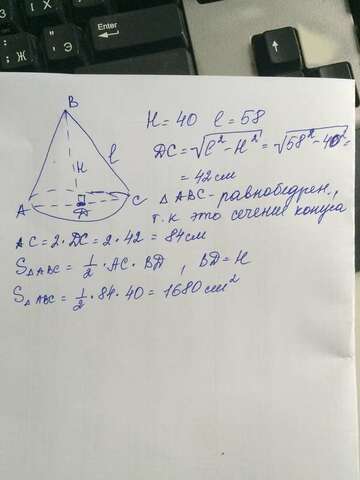 Enter
Ж
Э
B
H = 40 l = 58
DC = √l² - H² = √58² - 40² =
= 42 см
H
l
A
C
Δ ABC - равнобедрен.,
т.к это сечение конуса
AC = 2 · DC = 2 · 42 = 84 см
S Δ ABC = 1/2 · AC · BD , BD = H
S Δ ABC = 1/2 · 84 · 40 = 1680 см²